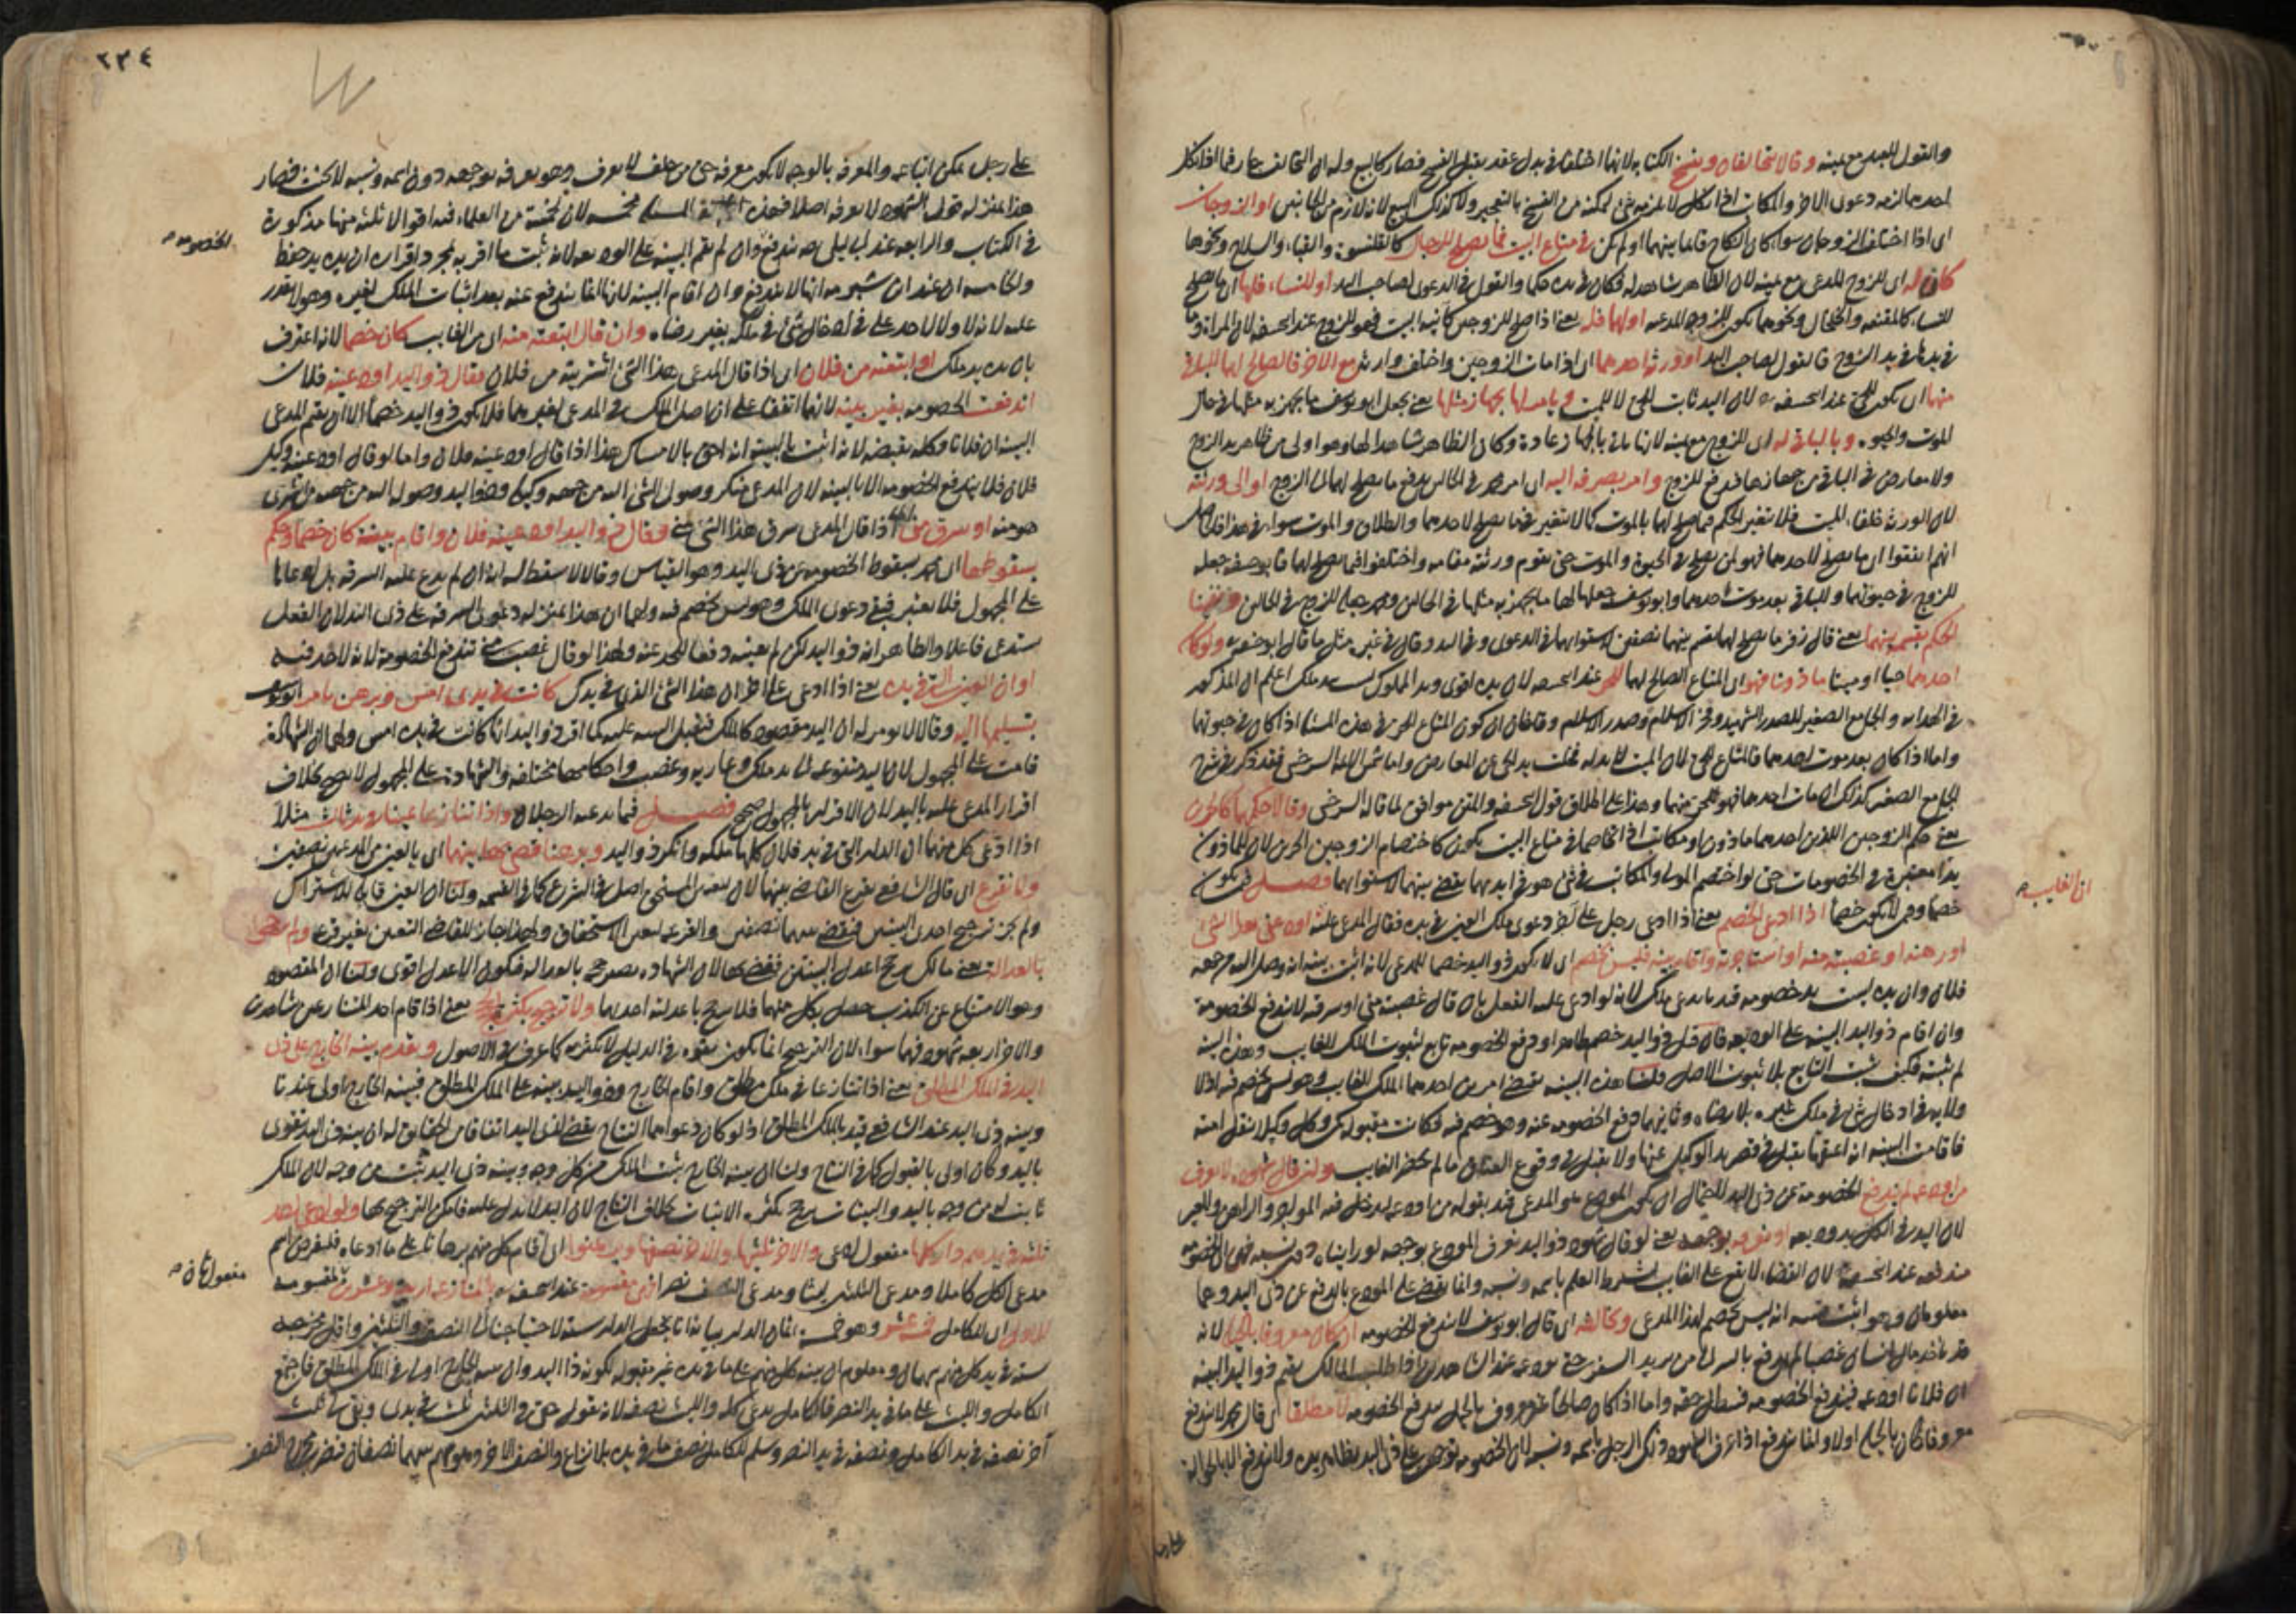 والقول للعبد مع يمينه وقالا تحالفان ويفسخ الكتابة لانهما اختلفا في بدل عقد يقبل الفسخ فصار كالبيع وله ان التحالف
احدهما لزمه دعوى الاخر والمكاتب اذا نكل لا يلزمه شئ لتمكنه من الفسخ بالتعجيز ولا كذلك البيع لانه لازم من الجانبين او الزوجان
اى اذا اختلف الزوجان سواء كان النكاح قائما بينهما او لم يكن في متاع البيت فما يصلح للرجال كالقلنسوة والقباء والسلاح ونحوها
كان له اى للزوج المدعى مع يمينه لان الظاهر شاهد له فكان في يده حكما والقول في الدعوى لصاحب اليد او للنساء فلها اى ما يصلح
للنساء كالمقنعة والخلخال ونحوهما يكون للزوجة المدعية او لهما فله يعنى اذا صلح للزوجين كآنية البيت فهو للزوج عند ابى حنيفة لان المرأة وما
في يدها في يد الزوج فالقول لصاحب اليد او ورثة احدهما اى اذا مات الزوجين واختلف وارثه مع الاخر فالصالح لهما للباقى
منهما اى يكون للحى عند ابى حنيفة لان اليد ثابت للحى لا للميت ويأمر لها بجهاز مثلها يعنى يجعل ابو يوسف ما يجهز به مثلها في حال
الموت والحيوة وبالباقى له اى للزوج مع يمينه لانها تأتى بالجهاز عادة وكان الظاهر شاهدا لها وهو اولى من ظاهر يد الزوج
ولا معارض في الباقى من جهازها فدفع للزوج وامر بصرفه اليه اى امر محمد في الحالين بدفع ما يصلح لهما الى الزوج او الى ورثته
لان الورثة خلفاء الميت فلا تغير الحكم فيما صلح لهما بالموت كما لا تتغير فيما يصلح لاحدهما والطلاق والموت سواء في هذا
انهم اتفقوا ان ما يصلح لاحدهما فهو لمن يصلح في الحيوة والموت حتى يقوم ورثته مقامه واختلفوا فيما يصلح لهما فابو حنيفة جعله
للزوج في حيوتهما وللباقى بعد موت احدهما وابو يوسف جعل لها ما يجهز به مثلها في الحالين ومحمد جعله للزوج في الحالين
الحكم بقسمه بينهما يعنى قال زفر ما يصلح لهما يقسم بينهما نصفين لاستوائهما في الدعوى وفي اليد وقال في غيره مثل ما قال ابو حنيفة ولو كان
احدهما حيا او ميتا مأذونا فهو اى المتاع الصالح لهما للحر عند ابى حنيفة لان يده اقوى ويد المملوك ليست يد ملك اعلم ان المذكور
في الهداية والجامع الصغير للصدر الشهيد وفخر الاسلام وصدر الاسلام وقاضيخان ان كون المتاع للحر في هذه المسئلة اذا كان في حيوتهما
واما اذا كان بعد موت احدهما فالمتاع للحى لان الميت لا يد له فخلت يد الحى عن المعارض واما شمس الائمة السرخسى فقد ذكر في شرح
الجامع الصغير كذلك ان مات احدهما فهو للحر منهما وهذا على اطلاق قول ابى حنيفة والمتن موافق لما قاله السرخسى وقالا حكمهما كالحرين
يعنى حكم الزوجين اللذين احدهما مأذون او مكاتب اذا اختصما في متاع البيت يكون كاختصام الزوجين الحرين لان للمأذون
يدا معتبرة في الخصومات حتى لو اختصم المولى والمكاتب في شئ هو في ايديهما يقضى بينهما لاستوائهما فصل فيمن يكون
خصما ومن لا يكون خصما اذا ادعى الخصم يعنى اذا ادعى رجل على اخر دعوى ملك العين في يده فقال المدعى عليه اودعنى هذا الشئ
او رهنه او غصبته منه او استأجرته واقام بينة فليس بخصم اى لا يكون ذو اليد خصما للمدعى لانه اثبت ببينته انه وصل اليه من جهة
فلان وان يده ليست يد خصومة قيد بما يدعى ملك لانه لو ادعى عليه الفعل بان قال غصبته منى او سرقته لا تندفع الخصومة
وان اقام ذو اليد البينة على الوديعة فان قيل ذو اليد خصم ظاهرا ودفع الخصومة تابع لثبوت الملك للغائب وهذه البينة
لم تثبته فكيف يثبت التابع بلا ثبوت الاصل قلنا هذه البينة تقتضى امرين احدهما الملك للغائب وهو ليس بخصم فيه اذ لا
ولاية في ادخال شئ في ملك غيره بلا رضاه وثانيهما دفع الخصومة عنه وهو خصم فيه فكانت مقبولة كمن وكل وكيلا بنقل امته
فاقامت البينة انه اعتقها تقبل في قصر يد الوكيل عنها ولا تقبل في وقوع العتاق ما لم يحضر الغائب ولو قال شهوده لا نعرف
من اودعه لم تندفع الخصومة عن ذى اليد لاحتمال ان يكون المودع هو المدعى قيد بقوله من اودعه ليدخل فيه المودع والراهن والمعير
لان اليد في الكل يد وديعة او نعرفه بوجهه يعنى لو قال شهود ذو اليد نعرف المودع بوجهه لو رأيناه دون نسبه فهى اى الخصومة
مندفعة عند ابى حنيفة لان القضاء لا يقع على الغائب ليشترط العلم باسمه ونسبه وانما يقضى على المودع بالدفع عن ذى اليد وهما
معلومان وهو اثبت ببينته انه ليس بخصم لهذا المدعى وخالفه اى قال ابو يوسف لا تندفع الخصومة ان كان معروفا بالحيل لانه
قد يأخذ مال انسان غصبا ثم يدفع بالسر الى من يريد السفر حتى يودعه عند الشاهدين فاذا طلب المالك يقيم ذو اليد البينة
ان فلانا اودعه فيندفع الخصومة فيبطل حقه واما اذا كان صالحا غير معروف بالحيل يندفع الخصومة لا مطلقا اى قال محمد لا تندفع
معروفا كان بالحيل او لا وانما تندفع اذا عرف الشهود ذلك الرجل باسمه ونسبه لان الخصومة توجهت على ذى اليد بظاهر يده ولا تندفع الا بالحوالة
ان الغايب صح
٢٣٤
على رجل يمكن اتباعه والمعرفة بالوجه لا يكون معرفة حتى من حلف لا يعرف وهو يعرفه بوجهه دون اسمه ونسبه لا يحنث فصار
هذا بمنزلة قول الشهود لا نعرفه اصلا فهذه المسئلة مخمسة لان لخمسة من العلماء فيه اقوالا ثلثة منها مذكورة
في الكتاب والرابعة عند ابن ابى ليلى انه تندفع وان لم يقم البينة على الوديعة لانه ثبت ما اقر به بمجرد اقراره ان يده يد حفظ
والخامسة ان عند ابن شبرمة انها لا تندفع وان اقام البينة لانها انما يندفع عنه بعد اثبات الملك لغيره وهو لا يقدر
عليه لانه لا ولاية لاحد على في ادخال شئ في ملكه بغير رضاه وان قال ابتعته منه اى من الغايب كان خصما لانه اعترف
بان يده يد ملك او ابتعته من فلان اى اذا قال المدعى هذا الشئ اشتريته من فلان فقال ذو اليد اودعنيه فلان
اندفعت الخصومة بغير بينة لانهما اتفقا على ان اصل الملك في المدعى لغيرهما فلا يكون ذو اليد خصما الا ان يقيم المدعى
البينة ان فلانا وكله بقبضه لانه اثبت بالبينة انه احق بالامساك هذا اذا قال اودعنيه فلان واما لو قال اودعنيه وكيل
فلان فلا يندفع الخصومة الا بالبينة لان المدعى منكر وصول الشئ اليه من جهة وكيله وذو اليد وصول اليه من جهة من اشترى
هو منه او سرق منى اى اذا قال المدعى سرق هذا الشئ منى فقال ذو اليد اودعنيه فلان واقام بينة كان خصما وحكم
بسقوطها اى محمد بسقوط الخصومة من ذى اليد وهو القياس وقالا لا تسقط له انه لم يدع عليه السرقة بل ادعاها
على المجهول فلا يعتبر فبقى دعوى الملك وهو ليس بخصم فيه ولهما ان هذا بمنزلة دعوى السرقة على ذى اليد لان الفعل
يستدعى فاعلا والظاهر انه ذو اليد لكن لم يعينه دفعا للحد عنه ولهذا لو قال غصب منى تندفع الخصومة لانه لا حد فيه
او ان العين التى في يده يعنى اذا ادعى على اخر ان هذا الشئ الذى في يدك كانت في يدى امس وبرهن يامر ابو يوسف
بتسليمها اليه وقالا لا يؤمر له ان اليد مقصودة كالملك فتقبل البينة عليه كما اقر ذو اليد انها كانت في يده امس ولهما ان الشهادة
قامت على المجهول لان اليد متنوعة الى يد ملك وعارية وغصب واحكامها مختلفة والشهادة على المجهول لا تصح بخلاف
اقرار المدعى عليه باليد لان الاقرار بالمجهول صحيح فصل فيما يدعيه الرجلان واذا تنازعا عينا في يد ثالث مثلا
اذا ادعى كل منهما ان الدار التى في يد فلان كلها ملكه وانكر ذو اليد وبرهنا قضى بها بينهما اى بالعين بين المدعيين نصفين
ولا نقرع اى قال الشافعى يقرع القاضى بينهما لان تعيين المستحق اصل في الشرع كما في القسمة ولنا ان العين قابل للاشتراك
ولم يجز ترجيح احدى البينتين فيقضى بينهما نصفين والقرعة لتعيين الاستحقاق ولهذا جاز للقاضى التعيين بغير قرعة ولم نقض
بالعدالة يعنى مالك يرجح اعدل البينتين فيقضى بها لان الشهادة تصير حجة بالعدالة فيكون الاعدل اقوى ولنا ان المقصود
وهو الامتناع عن الكذب حصل بكل منهما فلا يترجح باعدلية احديهما ولا ترجيح بكثرة يعنى اذا اقام احد المتنازعين شاهدين
والاخر اربعة شهود فهما سواء لان الترجيح انما يكون بقوة في الدليل لا بكثرته كما عرف في الاصول ويقدم بينة الخارج على ذى
اليد في الملك المطلق يعنى اذا تنازعا في ملك مطلق واقام الخارج وذو اليد بينة على الملك المطلق فبينة الخارج اولى عندنا
وبينة ذى اليد عند الشافعى قيد بالملك المطلق اذ لو كان دعواهما النتاج يقضى لذى اليد اتفاقا من الحقائق له ان بينة ذى اليد تقوى
باليد وكان اولى بالقبول كما في النتاج ولنا ان بينة الخارج يثبت الملك من كل وجه وبينة ذى اليد يثبت من وجه لان الملك
ثابت له من وجه باليد والبينات ترجح بكثرة الاثبات بخلاف النتاج لان اليد لا يدل عليه فامكن الترجيح بها ولو ادعى احد
ثلثة في يدهم دار كلها مفعول ادعى والاخر ثلثيها والاخر نصفها وبرهنوا اى اقام كل منهم برهانا على ما ادعاه فليفرض اسم
مدعى الكل كاملا ومدعى الثلثين ليثا ومدعى النصف نصرا فهى مقسومة عند ابى حنيفة بالمنازعة اربعة وعشرون المقسومة
للاول اى للكامل خمسة عشر وهو خمسة اثمان الدار بيانه انا نجعل الدار ستة لاحتياجنا الى النصف والثلثين واقل مخرجه
ستة في يد كل منهم سهمان ومعلوم ان بينة كل منهم على ما في يده غير مقبولة لكونه ذا اليد وان بينة الخارج اولى في الملك المطلق فاجتمع
الكامل والليث على ما في يد النصر فالكامل يدعى كله والليث نصفه لانه يقول حقى في الثلثين ثلث في يدى وبقى لى ثلث
آخر نصفه في يد الكامل ونصفه في يد النصر وسلم للكامل نصف ما في يده بلا نزاع والنصف الآخر وهو سهم بينهما نصفان فنضرب مخرج النصف
الخصومة صح
مفعول ثان صح